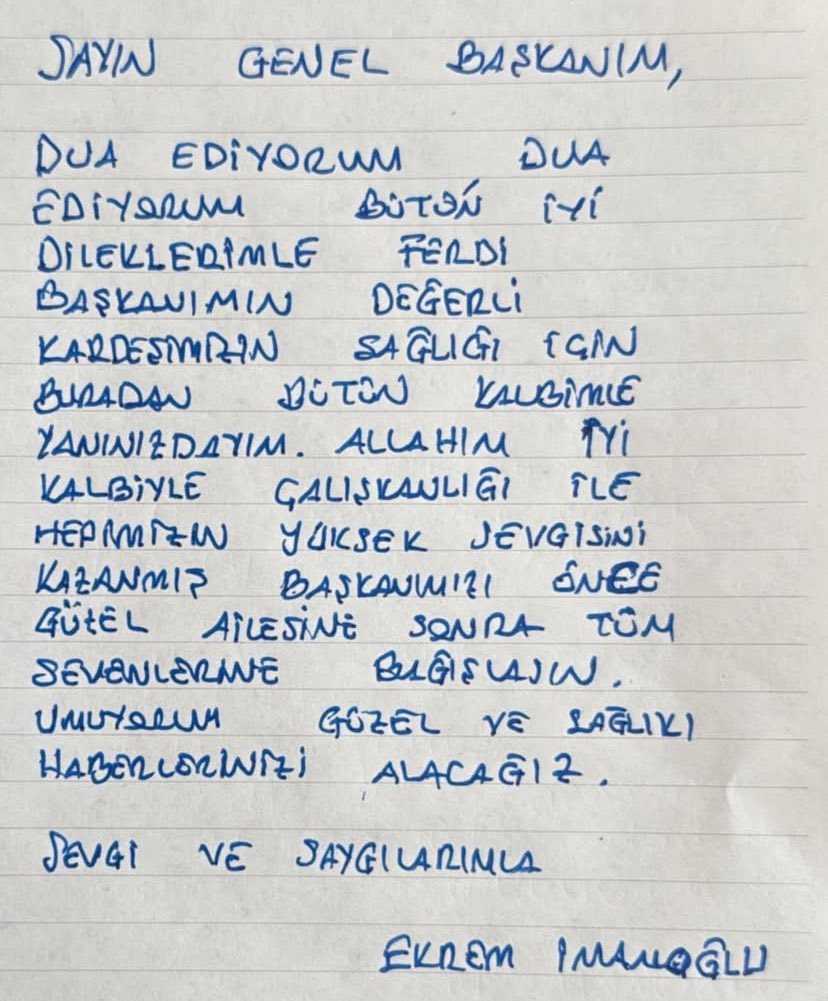 SAYIN GENEL BAŞKANIM,
DUA EDİYORUM DUA
EDİYORUM BÜTÜN İYİ
DİLEKLERİMLE FERDİ
BAŞKANIMIN DEĞERLİ
KARDEŞİMİZİN SAĞLIĞI İÇİN
BURADAN BÜTÜN KALBİMLE
YANINIZDAYIM. ALLAHIM İYİ
KALBİYLE ÇALIŞKANLIĞI İLE
HEPİMİZİN YÜKSEK SEVGİSİNİ
KAZANMIŞ BAŞKANIMIZI ÖNCE
GÜZEL AİLESİNE SONRA TÜM
SEVENLERİNE BAĞIŞLASIN.
UMUYORUM GÜZEL VE SAĞLIKI
HABERLERİNİZİ ALACAĞIZ.
SEVGİ VE SAYGILARIMLA
EKREM İMAMOĞLU